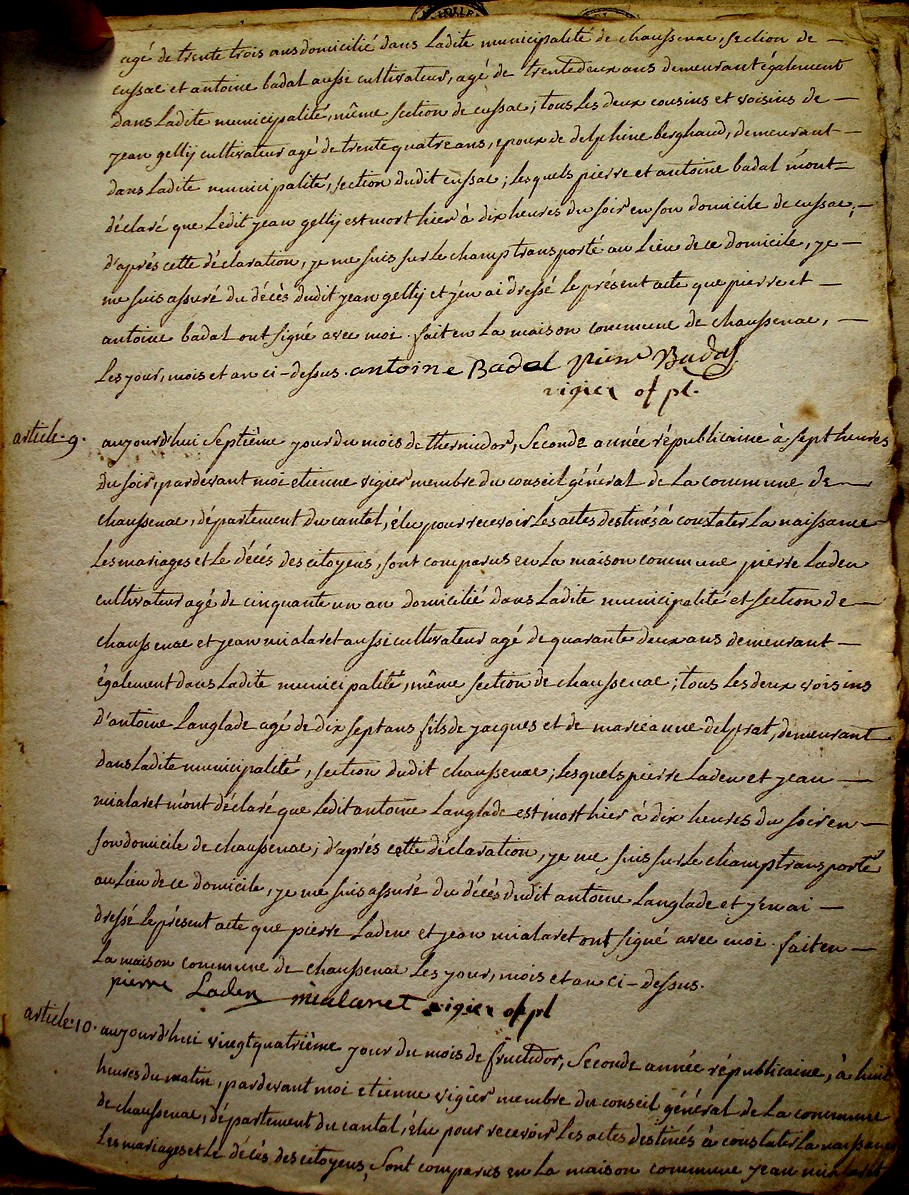 agé de trente trois ans domicilié dans Ladite municipalité de chaussenac, section de —
cussac et antoine badal aussi cultivateur, agé de trente deux ans demeurant également
dans Ladite municipalité, même section de cussac; tous Les deux cousins et voisins de —
jean gelly cultivateur agé de trente quatre ans, epoux de delphine berghaud, demeurant —
dans Ladite municipalité, section dudit cussac; Lesquels pierre et antoine badal m'ont =
déclaré que Ledit jean gelly est mort hier à dix heures du soir en son domicile de cussac, —
d'après cette déclaration, je me suis sur Le champ transporté au Lieu de ce domicile, je —
me suis assuré du décès dudit jean gelly et j'en ai dressé Le présent acte que pierre et —
antoine badal ont signé avec moi. fait en La maison commune de chaussenac, —
Les jour, mois et an ci-dessus. antoine Badal pierre Badal
vigier of. pl.
article. 9. aujourd'hui Septième jour du mois de thermidor, Seconde année républicaine à sept heures
du soir, pardevant moi etienne vigier membre du conseil général de La commune de —
chaussenac, département du cantal, élu pour recevoir Les actes destinés à constater La naissance
Les mariages et Le décès des citoyens, sont comparus en La maison commune pierre Laden
cultivateur agé de cinquante un an domicilié dans Ladite municipalité et section de —
chaussenac et jean mialaret aussi cultivateur agé de quarante deux ans demeurant —
également dans Ladite municipalité, même section de chaussenac; tous Les deux voisins
d'antoine Langlade agé de dix sept ans fils de jacques et de marie anne delprat, demeurant
dans Ladite municipalité, section dudit chaussenac; Lesquels pierre Laden et jean —
mialaret m'ont déclaré que Ledit antoine Langlade est mort hier à dix heures du soir en —
son domicile de chaussenac; d'après cette déclaration, je me suis sur Le champ transporté
au Lieu de ce domicile, je me suis assuré du décès dudit antoine Langlade et j'en ai —
dressé Le présent acte que pierre Laden et jean mialaret ont signé avec moi. fait en —
La maison commune de chaussenac Les jour, mois et an ci-dessus.
pierre Laden mialaret vigier of pl
article. 10. aujourd'hui vingt quatrième jour du mois de fructidor, Seconde année républicaine, à huit
heures du matin, pardevant moi etienne vigier membre du conseil général de La commune
de chaussenac, département du cantal, élu pour recevoir Les actes destinés à constater La naissance
Les mariages et Le décès des citoyens, Sont comparus en La maison commune jean mialaret